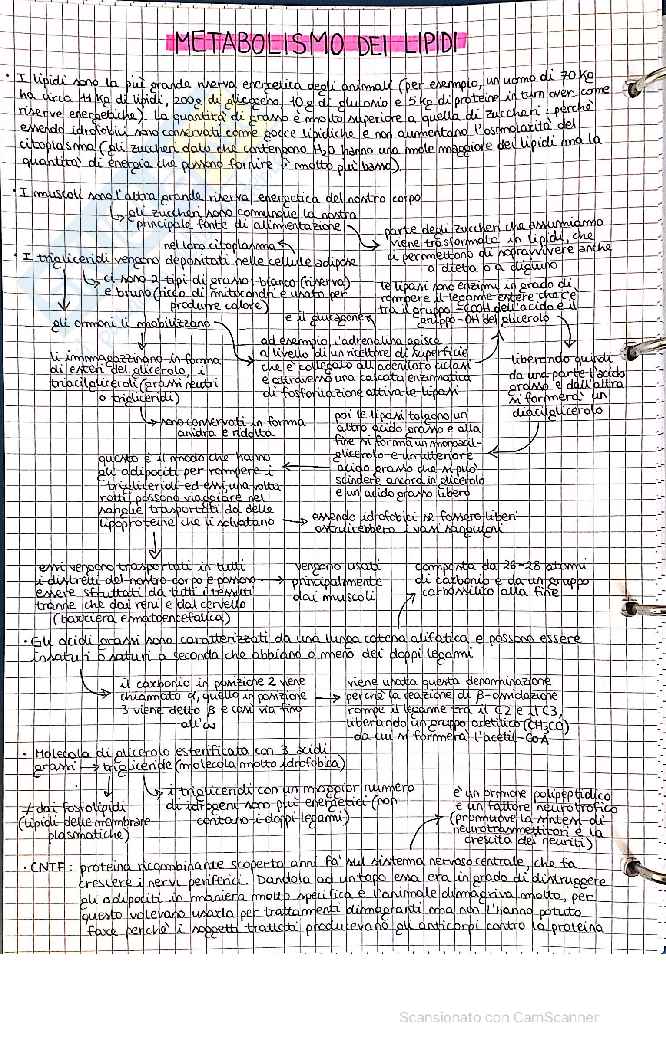 METABOLISMO DEI LIPIDI
• I lipidi sono la più grande riserva energetica degli animali (per esempio, un uomo di 70 kg
ha circa 11 kg di lipidi, 200g di glicogeno, 10g di glucosio e 5 kg di proteine in turn over come
riserve energetiche). La quantità di grasso è molto superiore a quella di zuccheri perché
essendo idrofobici sono conservati come gocce lipidiche e non aumentano l'osmolarità del
citoplasma (gli zuccheri dato che contengono H₂O hanno una mole maggiore dei lipidi ma la
quantità di energia che possono fornire è molto più bassa).
• I muscoli sono l'altra grande riserva energetica del nostro corpo
gli zuccheri sono comunque la nostra
principale fonte di alimentazione
parte degli zuccheri che assumiamo
viene trasformata in lipidi, che
ci permettono di sopravvivere anche
a dieta o a digiuno
nel loro citoplasma
• I trigliceridi vengono depositati nelle cellule adipose
ci sono 2 tipi di grasso: bianco (riserva)
e bruno (ricco di mitocondri e usato per
produrre calore)
le lipasi sono enzimi in grado di
rompere il legame estere che c'è
tra il gruppo -COOH dell'acido e il
gruppo -OH del glicerolo
gli ormoni li mobilizzano
e il glucagone
ad esempio, l'adrenalina agisce
a livello di un recettore di superficie
che è collegato all'adenilato ciclasi
e attraverso una cascata enzimatica
di fosforilazione attiva le lipasi
liberando quindi
da una parte l'acido
grasso e dall'altra
si formerà un
diacilglicerolo
li immagazzinano in forma
di esteri del glicerolo, i
triacilgliceridi (grassi neutri
o trigliceridi)
sono conservati in forma
anidra e ridotta
poi le lipasi tolgono un
altro acido grasso e alla
fine si forma un monoacil-
glicerolo e un ulteriore
acido grasso che si può
scindere ancora in glicerolo
e un acido grasso libero
questo è il modo che hanno
gli adipociti per rompere i
trigliceridi ed essi, una volta
rotti, possono viaggiare nel
sangue trasportati da delle
lipoproteine che li solvatano
essendo idrofobici se fossero liberi
ostruirebbero i vasi sanguigni
essi vengono trasportati in tutti
i distretti del nostro corpo e possono
essere sfruttati da tutti i tessuti
tranne che dai reni e dal cervello
(barriera ematoencefalica)
vengono usati
principalmente
dai muscoli
composta da 26-28 atomi
di carbonio e da un gruppo
carbossilico alla fine
• Gli acidi grassi sono caratterizzati da una lunga catena alifatica e possono essere
insaturi o saturi a seconda che abbiano o meno dei doppi legami
il carbonio in posizione 2 viene
chiamato α, quello in posizione
3 viene detto β e così via fino
all'ω
viene usata questa denominazione
perché la reazione di β-ossidazione
rompe il legame tra il C2 e il C3,
liberando un gruppo acetilico (CH₃CO)
da cui si formerà l'acetil-CoA
• Molecola di glicerolo esterificata con 3 acidi
grassi → trigliceride (molecola molto idrofobica)
≠ dai fosfolipidi
(lipidi delle membrane
plasmatiche)
i trigliceridi con un maggior numero
di idrogeni sono più energetici (non
contano i doppi legami)
è un ormone polipeptidico
e un fattore neurotrofico
(promuove la sintesi di
neurotrasmettitori e la
crescita dei neuriti)
• CNTF: proteina ricombinante scoperta anni fa sul sistema nervoso centrale, che fa
crescere i nervi periferici. Dandola ad un topo essa era in grado di distruggere
gli adipociti in maniera molto specifica e l'animale dimagriva molto, per
questo volevano usarla per trattamenti dimagranti ma non l'hanno potuto
fare perché i soggetti trattati producevano gli anticorpi contro la proteina
Scansionato con CamScanner